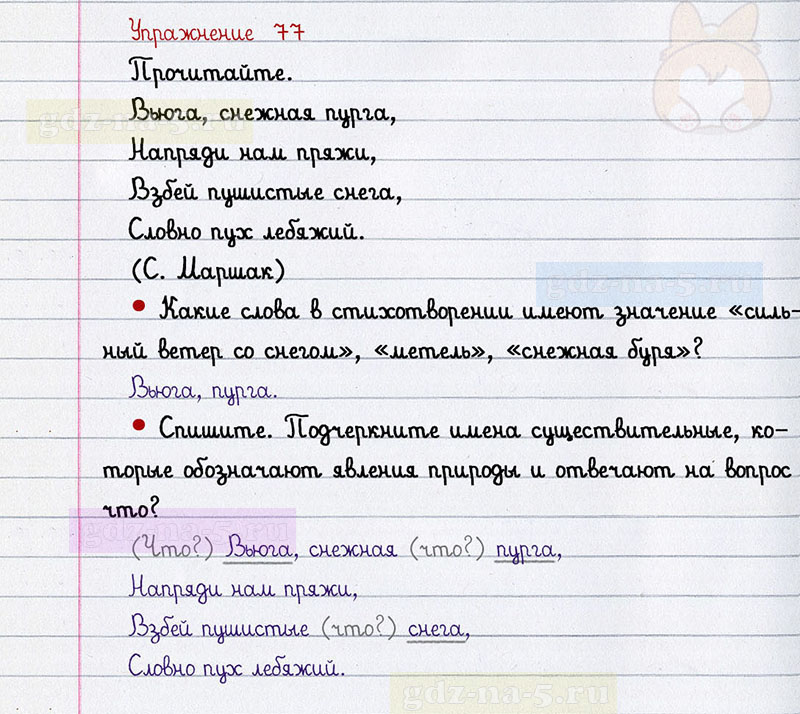 Упражнение 77
Прочитайте.
Вьюга, снежная пурга,
gdz-na-5.ru
Напряди нам пряжи,
Взбей пушистые снега,
Словно пух лебяжий.
(С. Маршак)
gdz-na-5.ru
• Какие слова в стихотворении имеют значение «силь-
ный ветер со снегом», «метель», «снежная буря»?
Вьюга, пурга.
• Спишите. Подчеркните имена существительные, ко-
торые обозначают явления природы и отвечают на вопрос
что?
gdz-na-5.ru
(Что?) Вьюга, снежная (что?) пурга,
Напряди нам пряжи,
Взбей пушистые (что?) снега,
Словно пух лебяжий.
gdz-na-5.ru